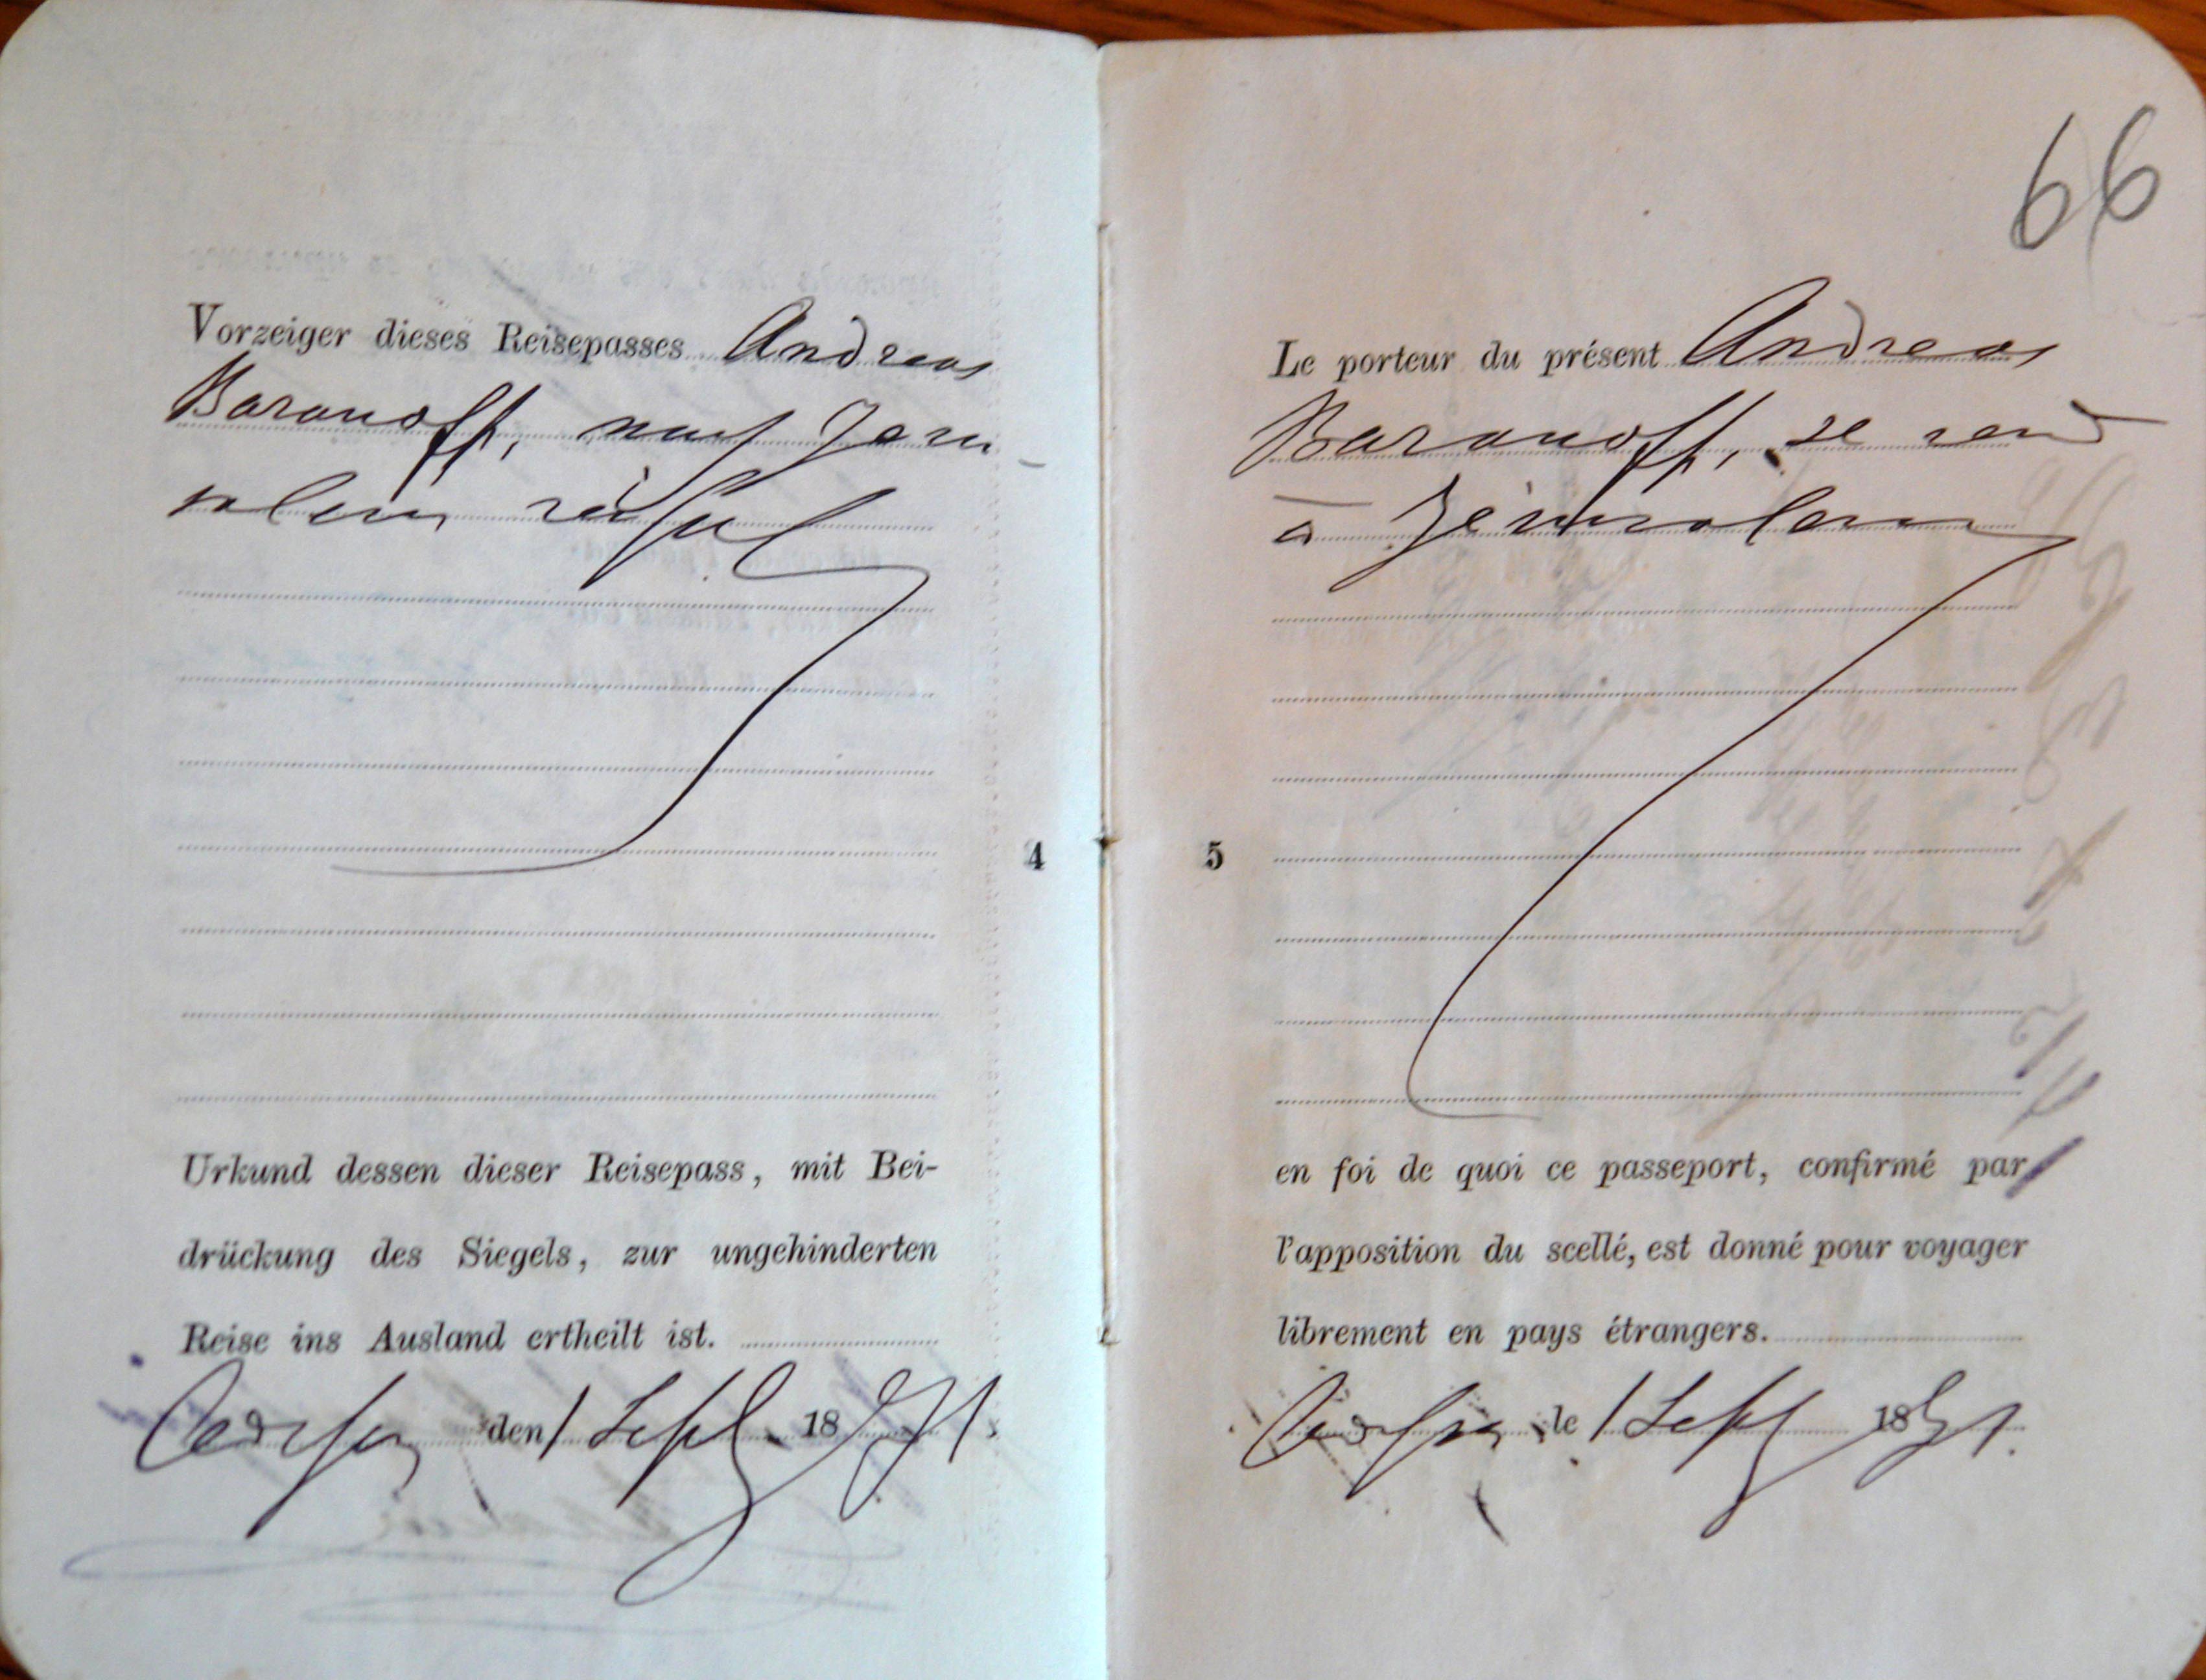 Vorzeiger dieses Reisepasses Andreas
Baranoff, nach Jeru-
salem reist
4
Urkund dessen dieser Reisepass, mit Bei-
drückung des Siegels, zur ungehinderten
Reise ins Ausland ertheilt ist.
Odessa den 1 Sept. 1891
66
Le porteur du présent Andreas
Baranoff, se rend
à Jérusalem
5
en foi de quoi ce passeport, confirmé par
l'apposition du scellé, est donné pour voyager
librement en pays étrangers.
Odessa le 1 Sept 1891.